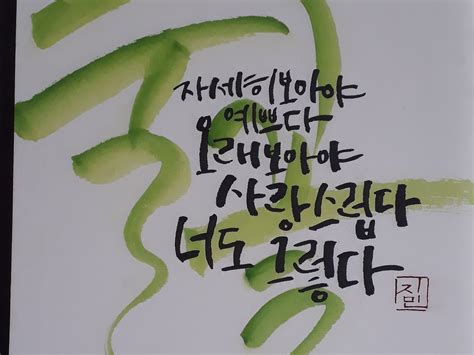 자세히보아야
예쁘다
오래보아야
사랑스럽다
너도 그렇다
지민